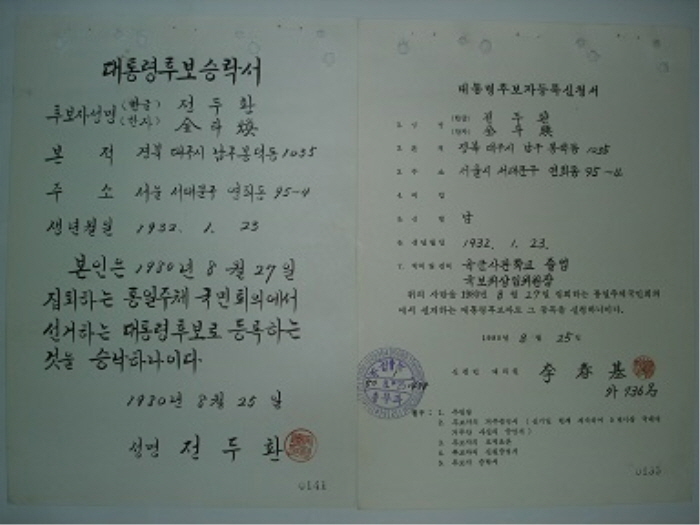 대통령후보승락서
후보자성명 (한글) 전두환
(한자) 全斗煥
본 적 경북 대구시 남구 봉덕동 1035
주 소 서울 서대문구 연희동 95-4
생년월일 1932. 1. 23
본인은 1980년 8월 27일
집회하는 통일주체 국민회의에서
선거하는 대통령후보로 등록하는
것을 승낙하나이다.
1980년 8월 25일
성명 전두환
0141
대통령후보자등록신청서
1. 성 명 (한글) 전두환
(한자) 全斗煥
2. 본 적 경북 대구시 남구 봉덕동
3. 주 소 서울시 서대문구 연희동 95-4
4. 직 업
5. 성 별 남
6. 생년월일 1932. 1. 23.
7. 학력 및 경력 육군사관학교 졸업
국보위상임위원장
위의 사람을 1980년 8월 27일 집회하는 통일주체국민회의
에서 선거하는 대통령후보자로 그 등록을 신청하나이다.
1980년 8월 25일
신청인 대의원 李春基
外 936名
1. 추천장
0135